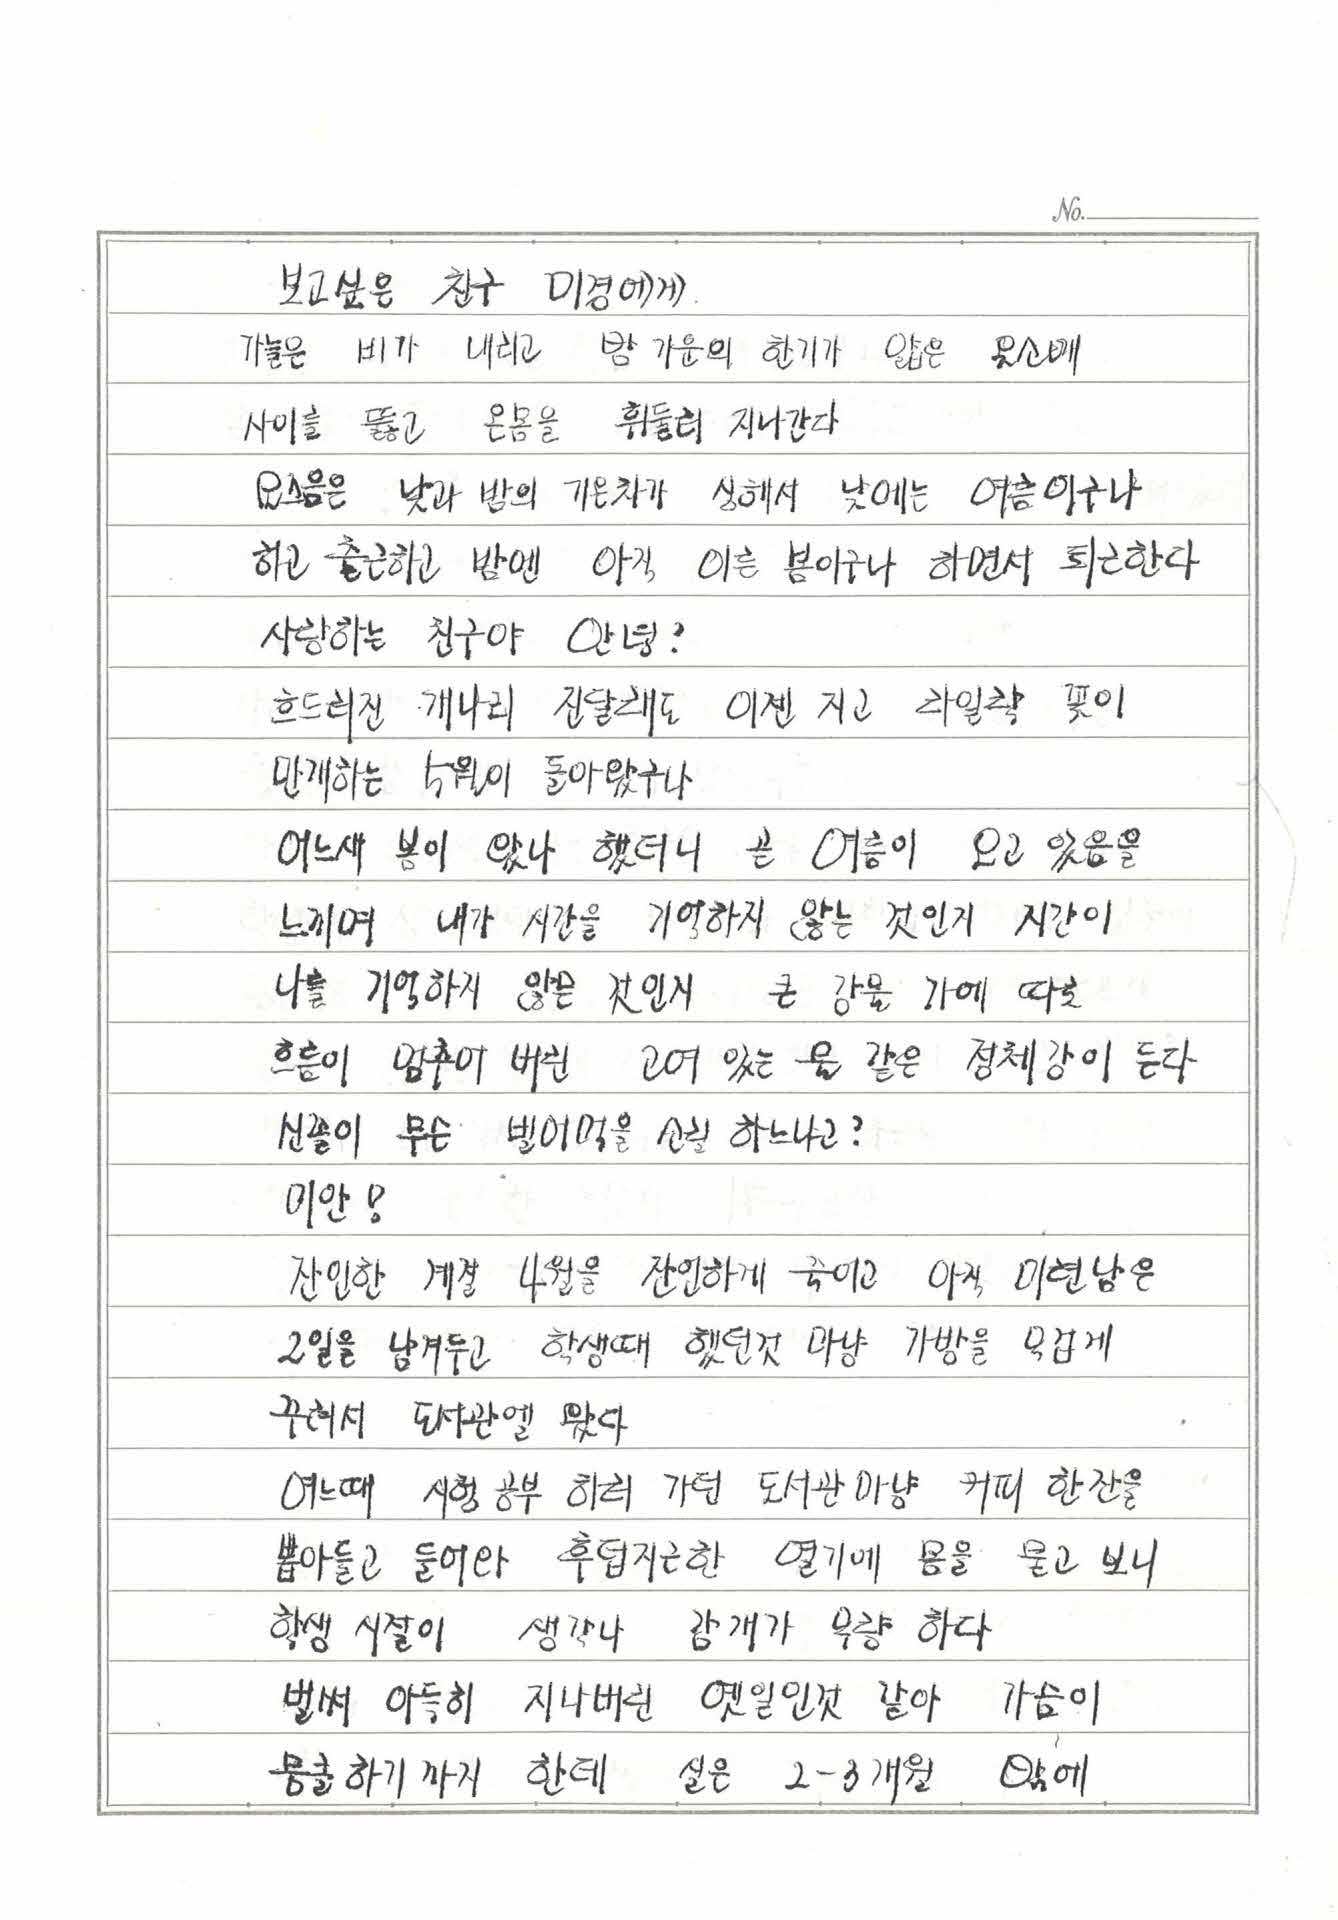 No.
보고싶은 친구 미경에게.
가늘은 비가 내리고 밤 가운의 한기가 얇은 옷소매
사이를 뚫고 온몸을 휘둘러 지나간다
요즈음은 낮과 밤의 기온차가 심해서 낮에는 여름이구나
하고 출근하고 밤엔 아직 이른 봄이구나 하면서 퇴근한다
사랑하는 친구야 안녕?
흐드러진 개나리 진달래도 이젠 지고 라일락 꽃이
만개하는 5월이 돌아왔구나
어느새 봄이 왔나 했더니 곧 여름이 오고 있음을
느끼며 내가 시간을 기억하지 않는 것인지 시간이
나를 기억하지 않는 것인지 큰 강물 가에 따로
흐름이 멈추어 버린 고여 있는 물 같은 정체감이 든다
신끌이 무슨 빌어먹을 소릴 하느냐고?
미안!
잔인한 계절 4월을 잔인하게 죽이고 아직 미련남은
2일을 남겨두고 학생때 했던것 마냥 가방을 무겁게
꾸려서 도서관엘 왔다
여느때 시험 공부 하러 가던 도서관마냥 커피 한잔을
뽑아들고 들어와 후덥지근한 열기에 몸을 묻고 보니
학생 시절이 생각나 감개가 무량 하다
벌써 아득히 지나버린 옛일인것 같아 가슴이
뭉클하기 까지 한데 실은 2-3개월 밖에